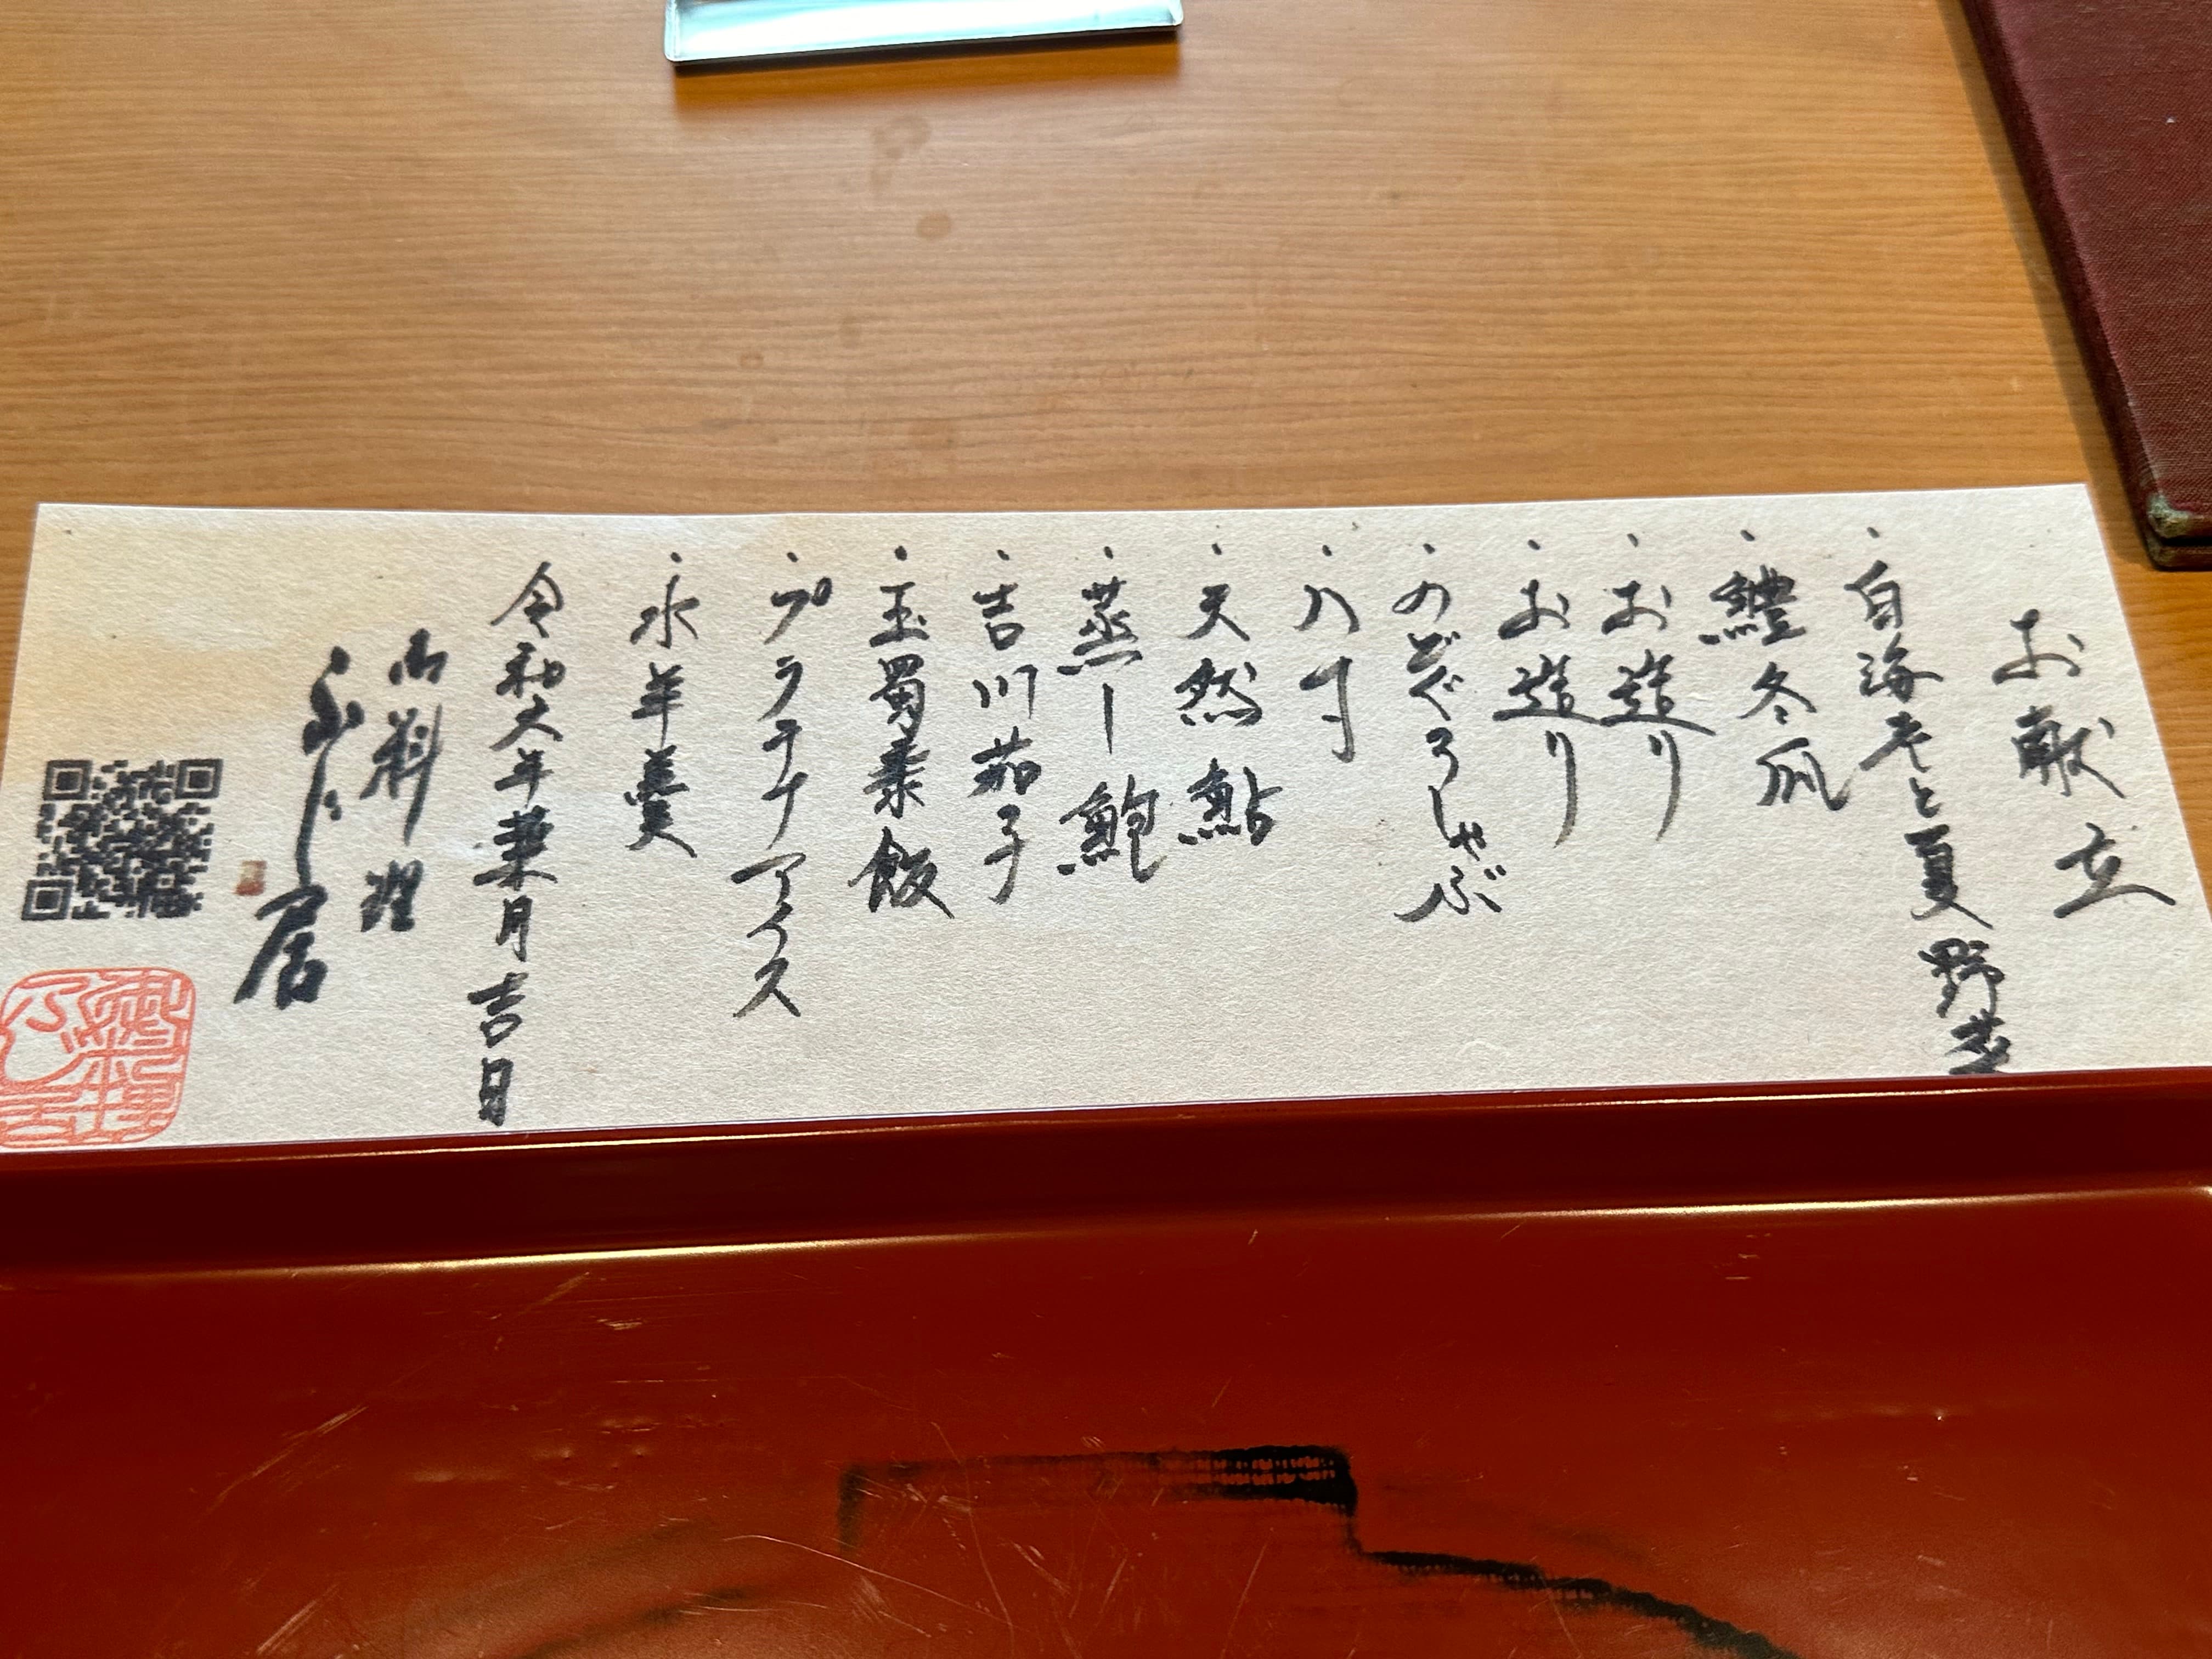 お献立
・白海老と夏野菜
・鱧冬瓜
・お造り
・お造り
・のどぐろしゃぶ
・八寸
・天然鮎
・蒸し鮑
・吉川茄子
・玉蜀黍飯
・プラチナアイス
・水羊羹
令和六年葉月吉日
御料理
ふじ居